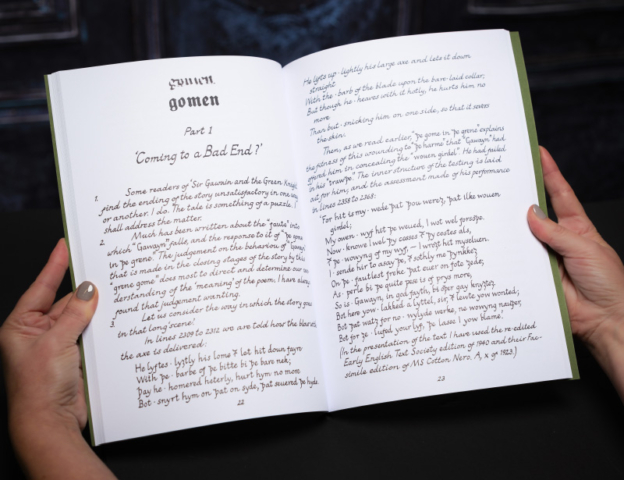 gomen
gomen
Part 1
'Coming to a Bad End?'
1. Some readers of 'Sir Gawain and the Green Knight'
find the ending of the story unsatisfactory in one way
or another. I do. The tale is something of a puzzle. I
shall address the matter.
2. Much has been written about the "faute" into
which "Gawayn" falls, and the response to it of "þe gome
in þe grene". The judgement on the behaviour of
that is made in the closing stages of the story by this
"grene gome" does most to direct and determine our un-
derstanding of the 'meaning' of the poem. I have
found that judgement wanting.
3. Let us consider the way in which the story
in that long scene.
In lines 2309 to 2312 we are told how the blow of
the axe is delivered:
He lyftes · lyȝtly his lome & let hit doun fayre
With þe · barbe of þe bitte bi þe bare nek;
Þaȝ he · homered heterly, hurt hym no more
Bot · snyrt hym on þat on syde, þat seuered þe hyde.
22
He lyfts up · lightly his large axe and lets it down
straight
With the · barb of the blade upon the bare-laid collar;
But though he · heaves with it hotly, he hurts him no
more
Than but · snicking him on one side, so that it severs
the skin.
Then, as we read earlier, "þe gome in þe grene" explains
the fitness of this wounding to þe harme that "Gawayn" had
offered him in concealing the "wouen girdel". He had failed
in his "trawþe". The inner structure of the testing is laid
out for him; and the assessment made of his performance
in lines 2358 to 2368:
'For hit is my · wede þat þou wereȝ, þat ilke wouen
girdel;
My owen · wyf hit þe weued, I wot wel forsoþe.
Now · knowe I wel þy cosses & þy costes als,
& þe · wowyng of my wyf, – I wroȝt hit myseluen.
I sende hir to asay þe, & sothly me þynkkeȝ
On þe · fautlest freke þat euer on fote ȝede;
As · perle bi þe quite pese is of prys more,
So is · Gawayn, in god fayth, bi oþer gay knyȝteȝ.
Bot here yow · lakked a lyttel, sir, & lewte yow wonted;
Bot þat watȝ for no · wylyde werke, ne wowyng nauþer,
Bot for ȝe · lufed your lyf; þe lasse I yow blame.'
(In the presentation of the text I have used the re-edited
Early English Text Society edition of 1940 and their fac-
simile edition of MS Cotton Nero. A, x of 1923.)
23